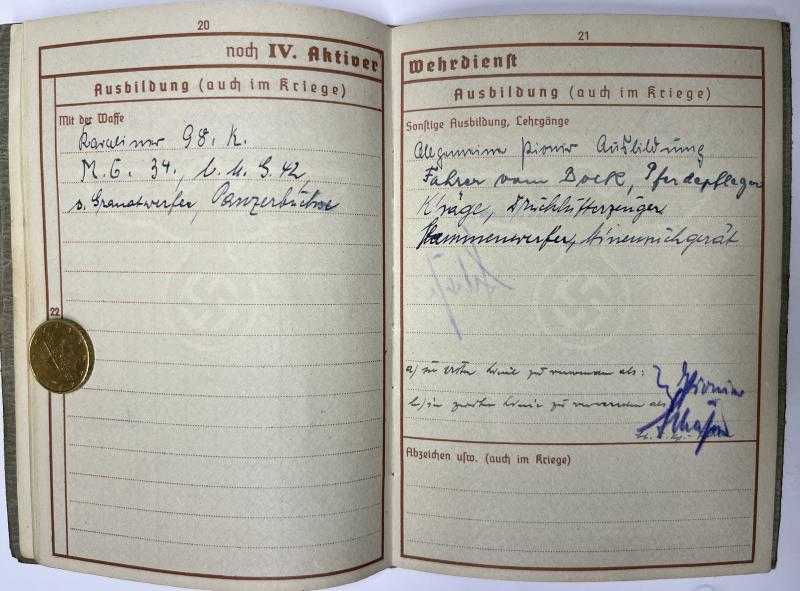 20
noch IV. Aktiver
Ausbildung (auch im Kriege)
Mit der Waffe
Karabiner 98. K.
M.G. 34., l. M.G. 42,
s. Granatwerfer, Panzerbüchse
22
21
Wehrdienst
Ausbildung (auch im Kriege)
Sonstige Ausbildung, Lehrgänge
Allgemeine Pionier Ausbildung
Fahrer vom Bock, Pferdepfleger
Drucklufterzeuger
Flammenwerfer, Minensuchgerät
a) in erster Linie zu verwenden als:
Pionier
b) in zweiter Linie zu verwenden als
Abzeichen usw. (auch im Kriege)